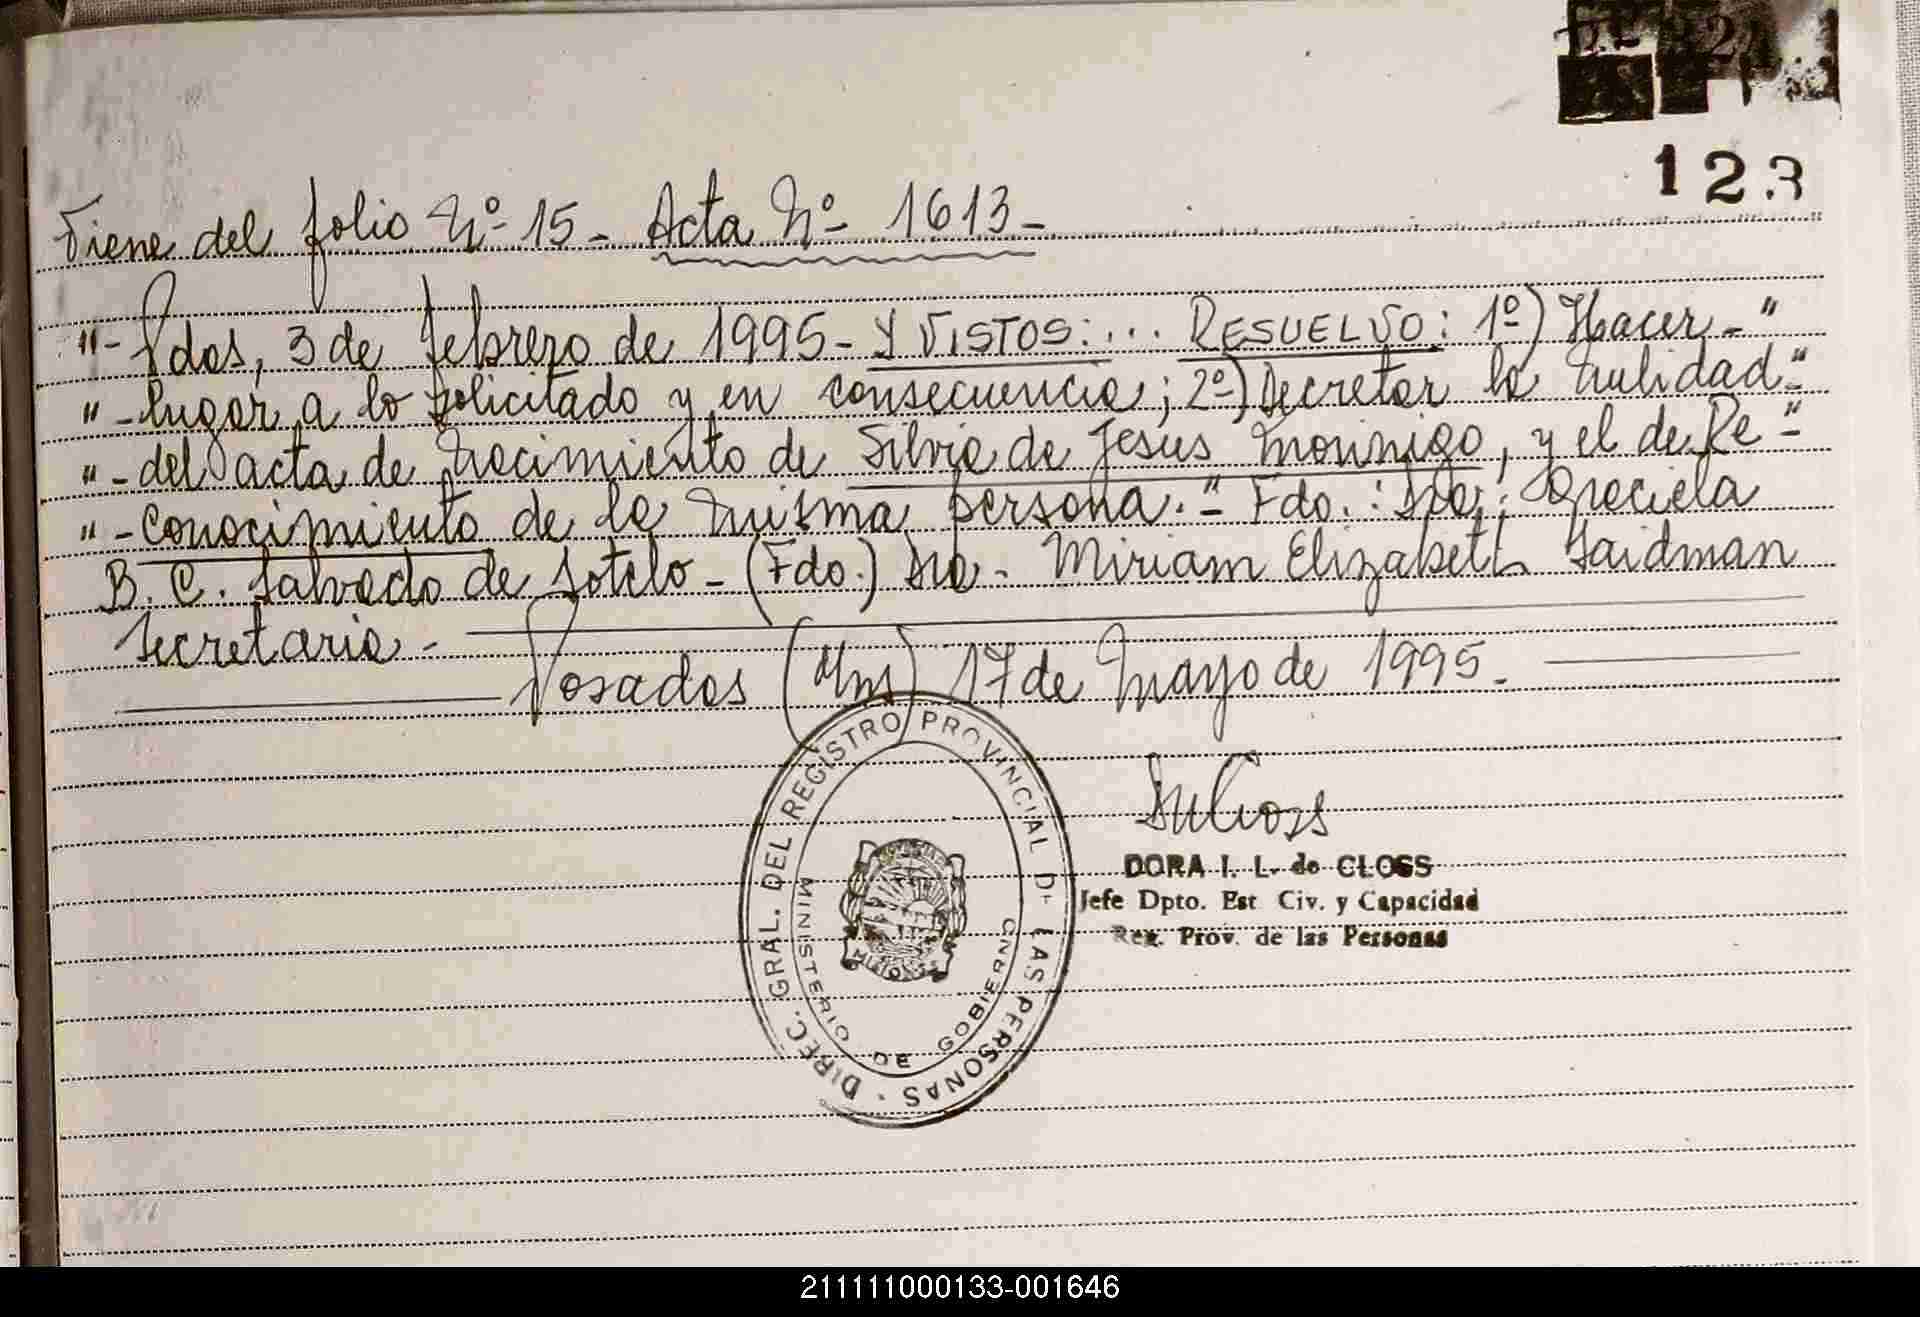 123
Viene del folio Nº 15 - Acta Nº 1613 -
"- Pdas, 3 de febrero de 1995 - Y VISTOS: ... RESUELVO: 1º) Hacer - "
"- lugar a lo solicitado y en consecuencia; 2º) Decretar la nulidad - "
"- del acta de nacimiento de Silvia de Jesus Morinigo, y el de Re - "
"- conocimiento de la misma persona. " - Fdo. : Dra. : Graciela
B. C. Salvado de Sotelo - (Fdo.) Dra. Miriam Elizabeth Saidman
Secretaria -
Posadas (Mns) 17 de Mayo de 1995 -
DORA I. L. de CLOSS
Jefe Dpto. Est Civ. y Capacidad
Reg. Prov. de las Personas
DIREC. GRAL. DEL REGISTRO PROVINCIAL DE LAS PERSONAS
MINISTERIO DE GOBIERNO
MISIONES
211111000133-001646